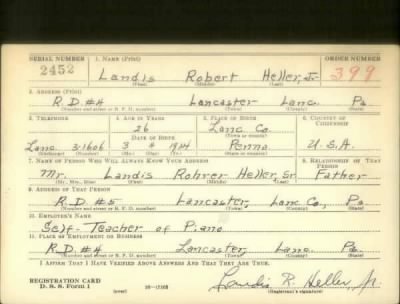 SERIAL NUMBER 1. NAME (Print) ORDER NUMBER
2452 Landis Robert Heller, Jr. 399
(First) (Middle) (Last)
2. ADDRESS (Print)
R.D.#4 Lancaster Lanc. Pa.
(Number and street or R. F. D. number) (Town) (County) (State)
3. TELEPHONE 4. AGE IN YEARS 5. PLACE OF BIRTH 6. COUNTRY OF CITIZENSHIP
26 Lanc. Co.
DATE OF BIRTH (Town or county)
Lanc. 3-1606 3 4 1914 Penna. U.S.A.
(Exchange) (Number) (Mo.) (Day) (Yr.) (State or country)
7. NAME OF PERSON WHO WILL ALWAYS KNOW YOUR ADDRESS 8. RELATIONSHIP OF THAT PERSON
Mr. Landis Rohrer Heller, Sr. Father
(Mr., Mrs., Miss) (First) (Middle) (Last)
9. ADDRESS OF THAT PERSON
R.D.#5 Lancaster, Lanc. Co., Pa.
(Number and street or R. F. D. number) (Town) (County) (State)
10. EMPLOYER'S NAME
Self-Teacher of Piano
11. PLACE OF EMPLOYMENT OR BUSINESS
R.D.#4 Lancaster, Lanc. Pa.
(Number and street or R. F. D. number) (Town) (County) (State)
I AFFIRM THAT I HAVE VERIFIED ABOVE ANSWERS AND THAT THEY ARE TRUE.
REGISTRATION CARD
D. S. S. Form 1 (over) Landis R. Heller, Jr.
(Registrant's signature)